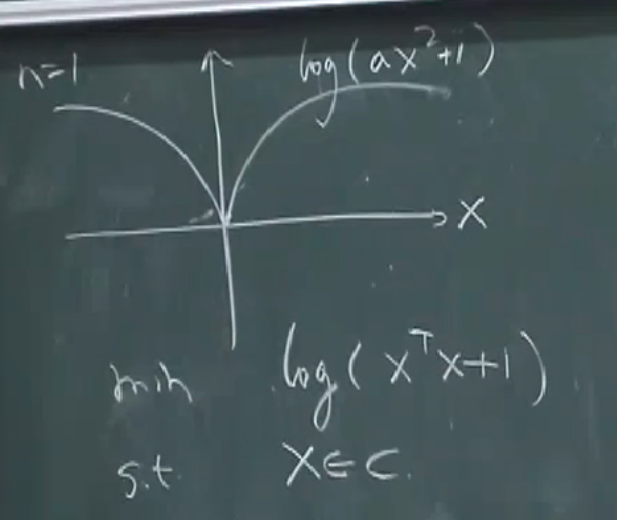 n=1
log(ax²+1)
X
min log(xᵀx+1)
s.t. X∈C.